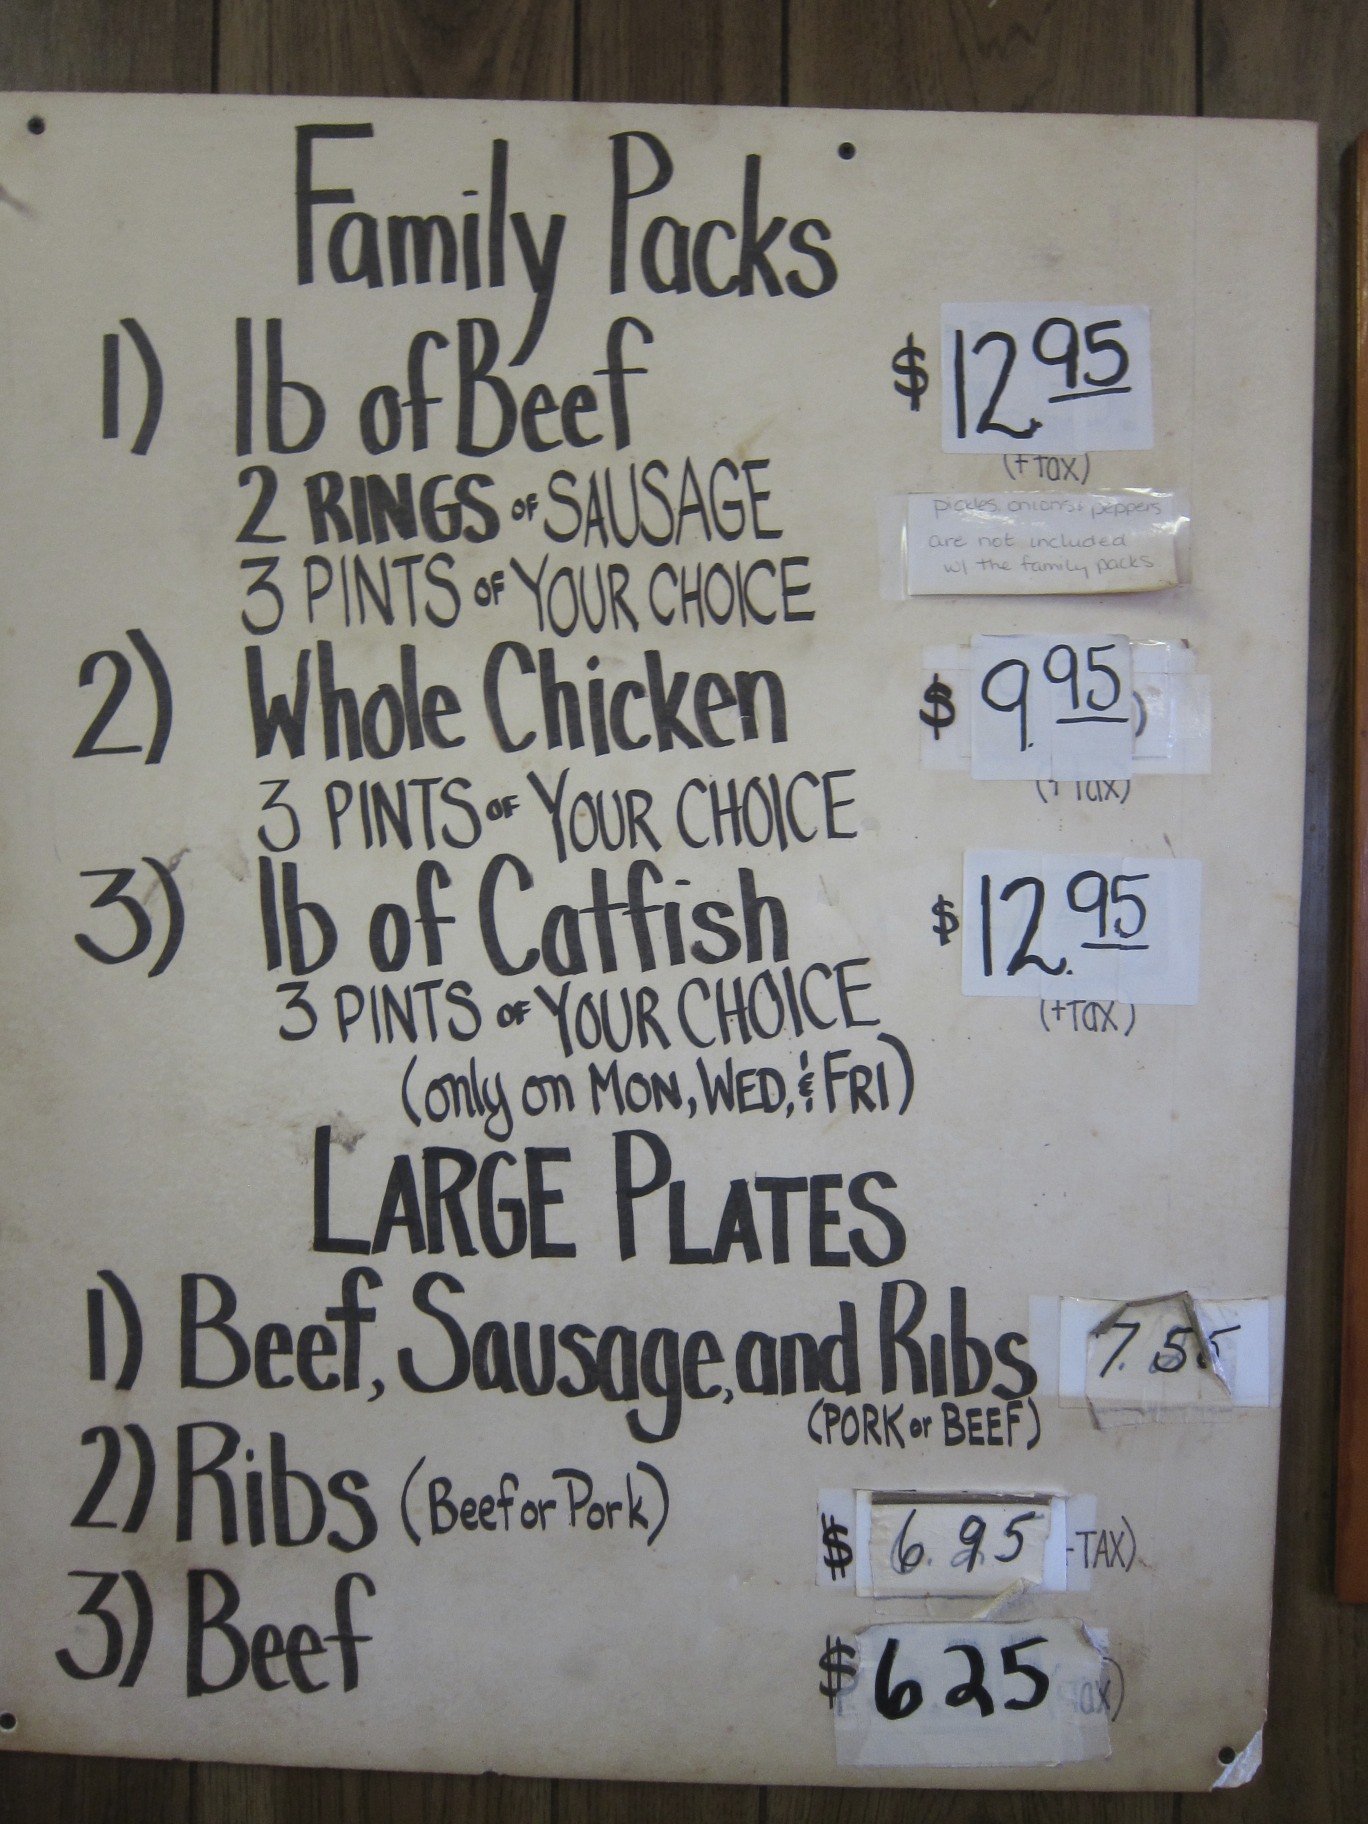 Family Packs
1) 1lb of Beef $12.95
(+tax)
2 RINGS OF SAUSAGE
3 PINTS OF YOUR CHOICE
pickles, onions & peppers
are not included
w/ the family packs
2) Whole Chicken $9.95
(+tax)
3 PINTS OF YOUR CHOICE
3) 1lb of Catfish $12.95
(+tax)
3 PINTS OF YOUR CHOICE
(only on MON, WED, & FRI)
LARGE PLATES
1) Beef, Sausage, and Ribs 7.55
(PORK or BEEF)
2) Ribs (Beef or Pork) $6.95 TAX)
3) Beef $625 tax)